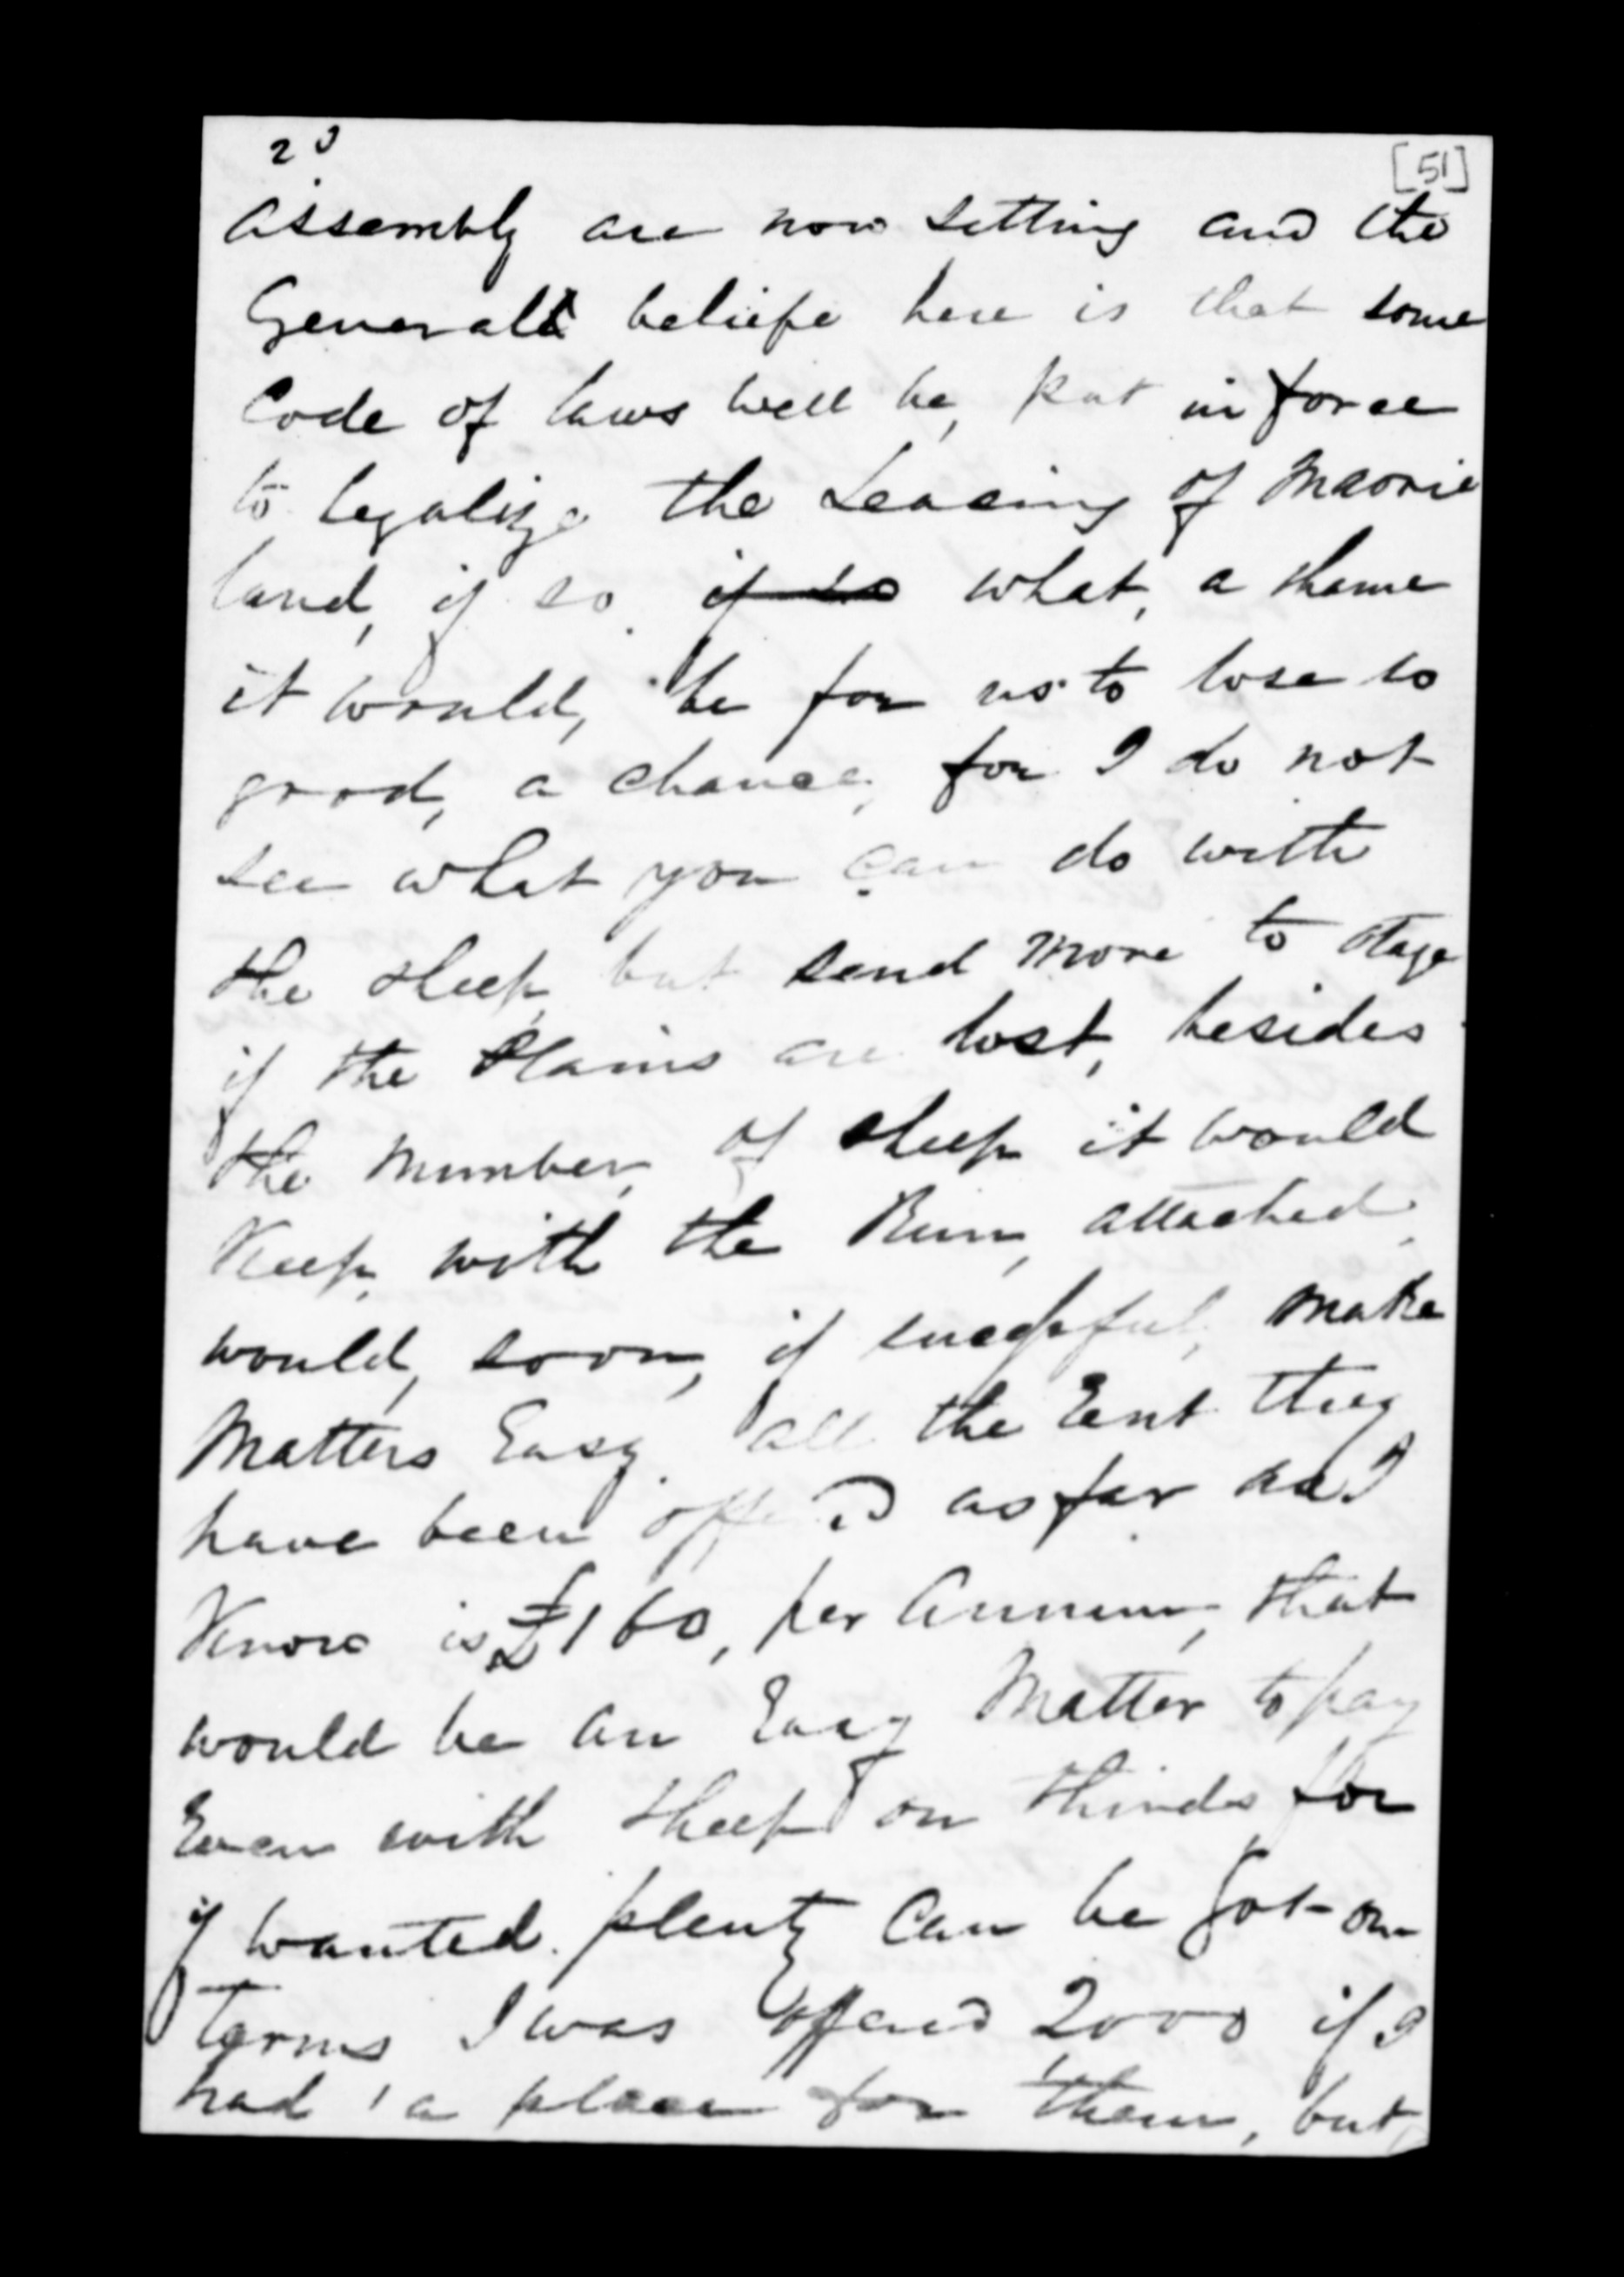 [51]
assembly are now setting and the
Generall beliefe here is that some
Code of laws will be, put in force
to legalize the Leasing of Maorie
land, if so if so what, a shame
it would, be for us to lose so
good, a chance, for I do not
see what you can do with
the sheep, but send more to Otago
if the Plains are lost, besides
the Number, of sheep it would
Keep, with the Run, attached,
would, soon, if sucessful, make
Matters Easy. all the Rent they
have been offerd as far as I
Know is £160, per Annum, that
would be an Easy Matter to pay
Even with sheep on thirds for
if wanted. plenty Can be got on
terms I was offerd 2000 if I
had a place for them, but,